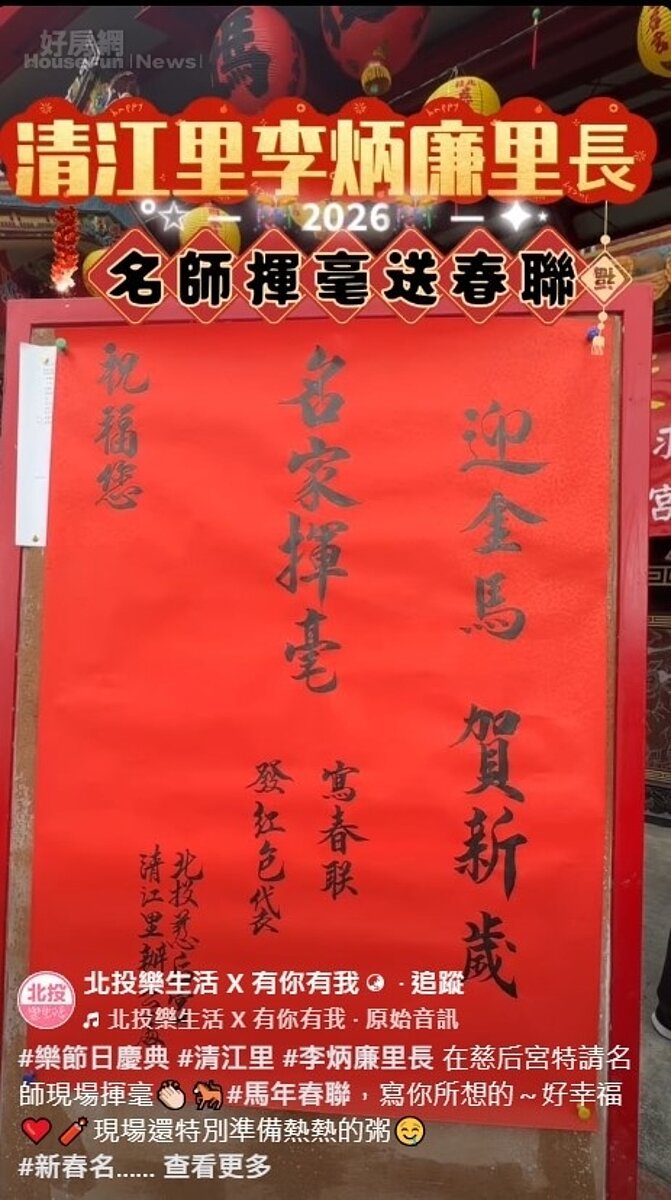 好房網
HouseFun News
馬
清江里李炳廉里長
2026
名師揮毫送春聯
福
迎金馬 賀新歲
名家揮毫
寫春联
發红包袋
祝福您
北投慈后宮
清江里辦公處
北投
北投樂生活 X 有你有我 · 追蹤
北投樂生活 X 有你有我 · 原始音訊
#樂節日慶典 #清江里 #李炳廉里長 在慈后宮特請名
師現場揮毫👏🏻🐂#馬年春聯，寫你所想的～好幸福
❤️🧨現場還特別準備熱熱的粥😋
#新春名...... 查看更多